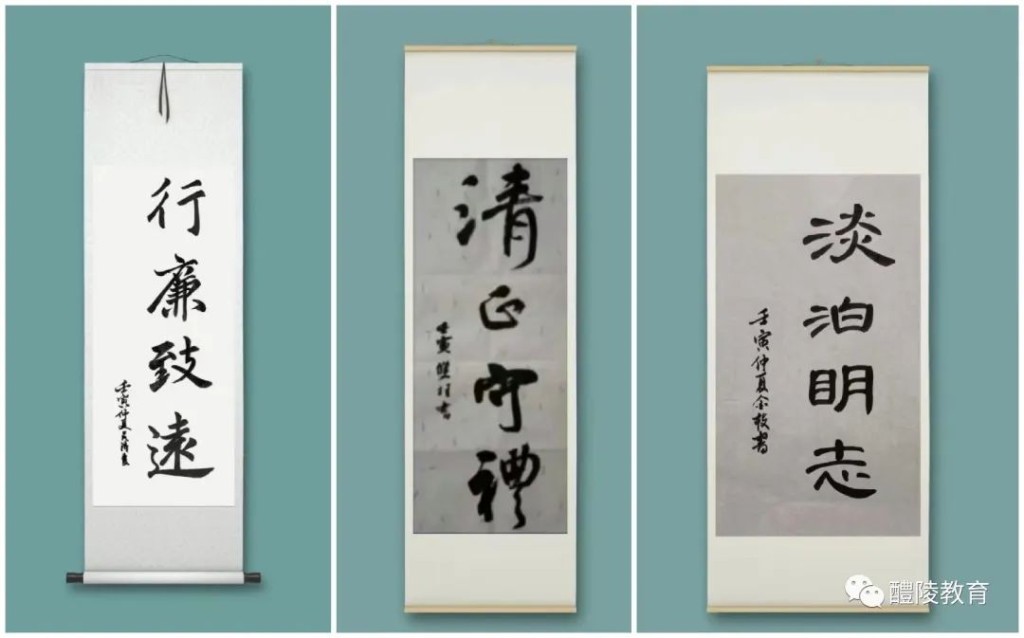 行廉致遠
壬寅仲夏
清正守禮
壬寅
書
淡泊明志
壬寅仲夏余敏書
醴陵教育